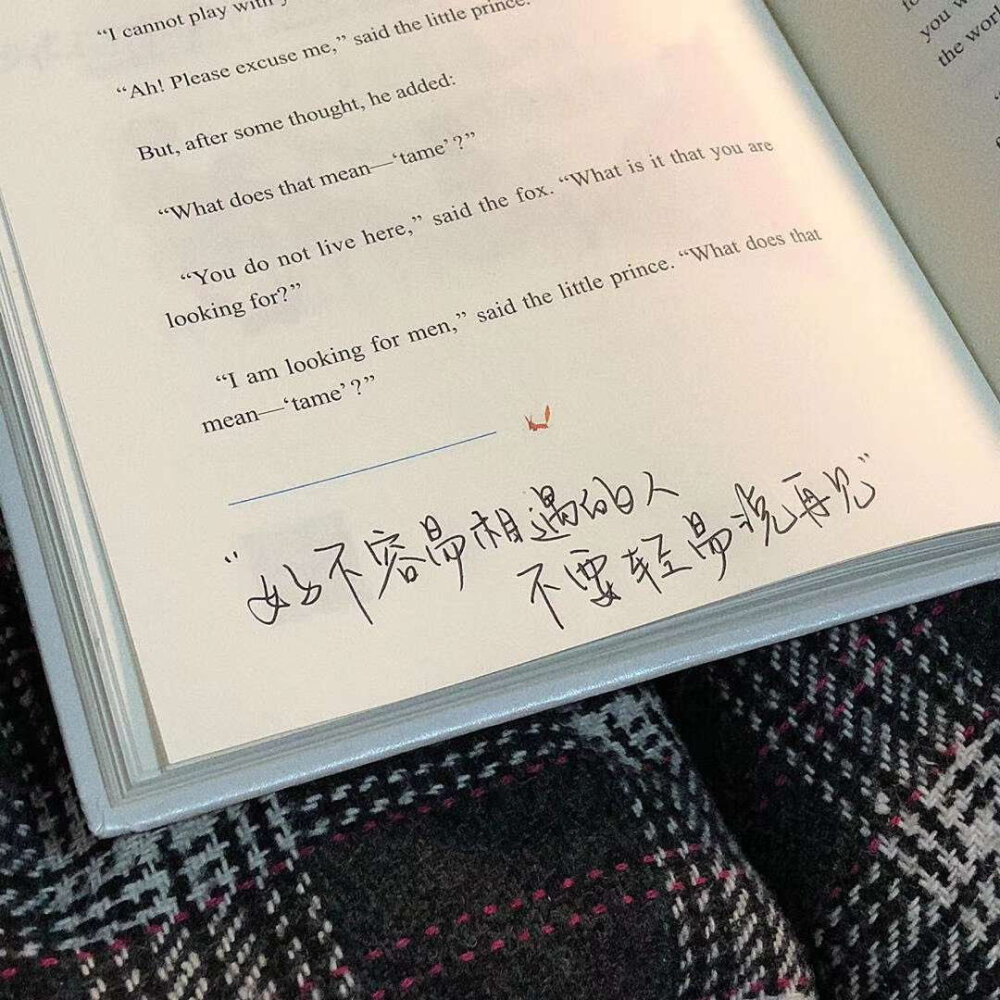 “I cannot play with
“Ah! Please excuse me,” said the little prince.
But, after some thought, he added:
“What does that mean—‘tame’?”
“You do not live here,” said the fox. “What is it that you are
looking for?”
“I am looking for men,” said the little prince. “What does that
mean—‘tame’?”
“好不容易相遇的人
不要轻易说再见”
you
the